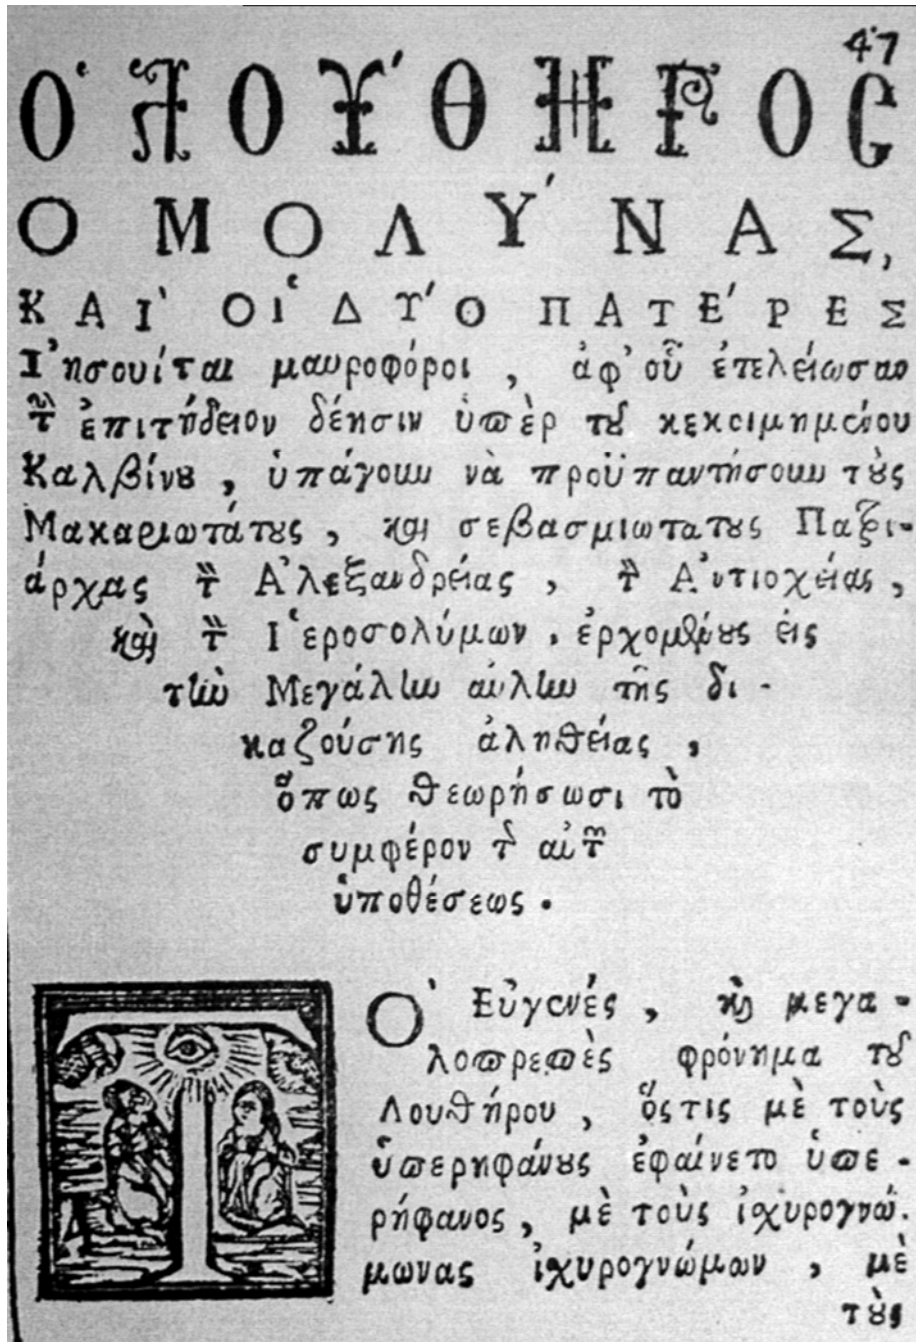 47
Ὁ ΛΟΎΘΗΡΟΣ
Ο ΜΟΛΎΝΑΣ,
ΚΑῚ ΟἹ ΔΎΟ ΠΑΤΈΡΕΣ
Ἰησουίται μαυροφόροι, ἀφ᾽οὗ ἐπελείωσαν
τὴν ἐπιτήδειον δέησιν ὑπὲρ τοῦ κεκοιμημένου
Καλβίνου, ὑπάγουν νὰ προϋπαντήσουν τοὺς
Μακαριωτάτους, καὶ σεβασμιωτατους Πατρι-
άρχας τῆς Ἀλεξανδρείας, τῆς Ἀντιοχείας,
καὶ τῶν Ἱεροσολύμων, ἐρχομένους εἰς
τὴν Μεγάλην αὐλὴν τῆς δι-
καζούσης ἀληθείας,
ὅπως θεωρήσωσι τὸ
συμφέρον τῆς αὐτῶν
ὑποθέσεως.
Τ Ὸ Εὐγενές, καὶ μεγα-
λοπρεπὲς φρόνημα τοῦ
Λουθήρου, ὅςτις μὲ τοὺς
ὑπερηφάνους ἐφαίνετο ὑπε-
ρήφανος, μὲ τοὺς ἰχυρογνώ-
μωνας ἰχυρογνώμων, μὲ
τοὺς